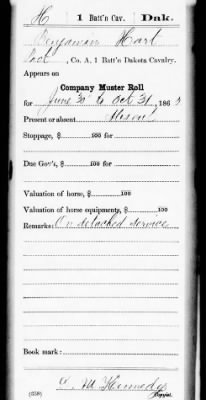 H | 1 Batt'n Cav. | Dak.
Benjamin Hart
Co. A, 1 Batt'n Dakota Cavalry.
Appears on
Company Muster Roll
for June 30 to Oct 31, 1863
Present or absent Absent
Stoppage, $ 100 for
Due Gov't, $ 100 for
Valuation of horse, $ 100
Valuation of horse equipments, $ 100
Remarks: On detached service
Book mark:
(358)
Copyist.